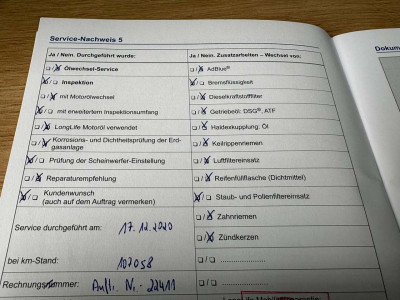 Service-Nachweis 5
Ja / Nein. Durchgeführt wurde:
Ölwechsel-Service
Inspektion
mit Motorölwechsel
mit erweitertem Inspektionsumfang
LongLife Motoröl verwendet
Korrosions- und Dichtheitsprüfung der Erd-
gasanlage
Prüfung der Scheinwerfer-Einstellung
Reparaturempfehlung
Kundenwunsch
(auch auf dem Auftrag vermerken)
Service durchgeführt am: 17.12.2020
bei km-Stand: 107058
Rechnungsnummer: Auftr. Nr. - 22411
Ja / Nein. Zusatzarbeiten – Wechsel von:
AdBlue®
Bremsflüssigkeit
Dieselkraftstofffilter
Getriebeöl: DSG®, ATF
Haldexkupplung: Öl
Keilrippenriemen
Luftfiltereinsatz
Reifenfüllflasche (Dichtmittel)
Staub- und Pollenfiltereinsatz
Zahnriemen
Zündkerzen
Dokum